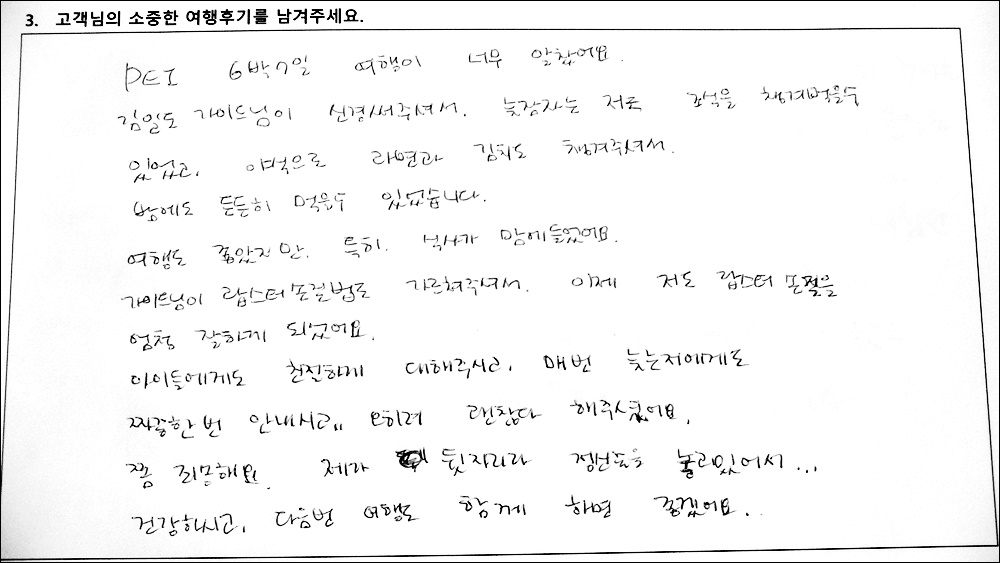 3. 고객님의 소중한 여행후기를 남겨주세요.
PEI 6박7일 여행이 너무 알찼어요.
김일도 가이드님이 신경써주셔서. 늦장자는 저로 조식을 챙겨먹을수
있었고, 야식으로 라면과 김치도 챙겨주셔서.
밤에도 든든히 먹을수 있었습니다.
여행도 좋았지만. 특히. 식사가 맘에들었어요.
가이드님이 랍스터손질법도 가르쳐주셔서. 이제 저도 랍스터 손질을
엄청 잘하게 되었어요.
아이들에게도 친절하게 대해주시고, 매번 늦는저에게도
짜증한번 안내시고,, 오히려 괜찮다 해주셨어요.
쫌 죄송해요. 제가 뒷자리라 정신줄을 놓고있어서...
건강하시고, 다음번 여행도 함께 하면 좋겠어요.